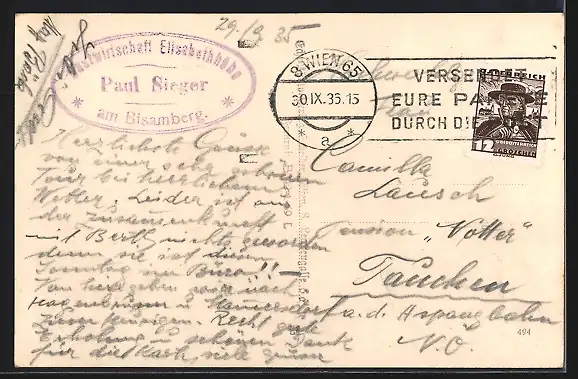 29/9 35
Gastwirtschaft Elisabethhöhe
Paul Sieger
am Bisamberg.
8 WIEN 65
30.IX.35.15
* a *
VERSENDET
EURE PAKETE
DURCH DIE POST
ÖSTERREICH
12
OBERÖSTERREICH
GROSCHEN
Herzlichste Grüsse
von einer sehr schönen
Tour bei herrlichem
Wetter. Leider ist aus
der Zusammenkunft
mit Berth nichts geworden
denn sie ist diesen
Sonntag im Büro!!
Von hier gehen wir nach
Hagenbrunn u.
zum Heurigen. Recht gute
Erholung u. schönen Dank
für die Karte, viele Grüsse
Frau
Camilla
Lausch
Pension "Vötter"
Tauchen
a. d. Aspangbahn
N.Ö.
494